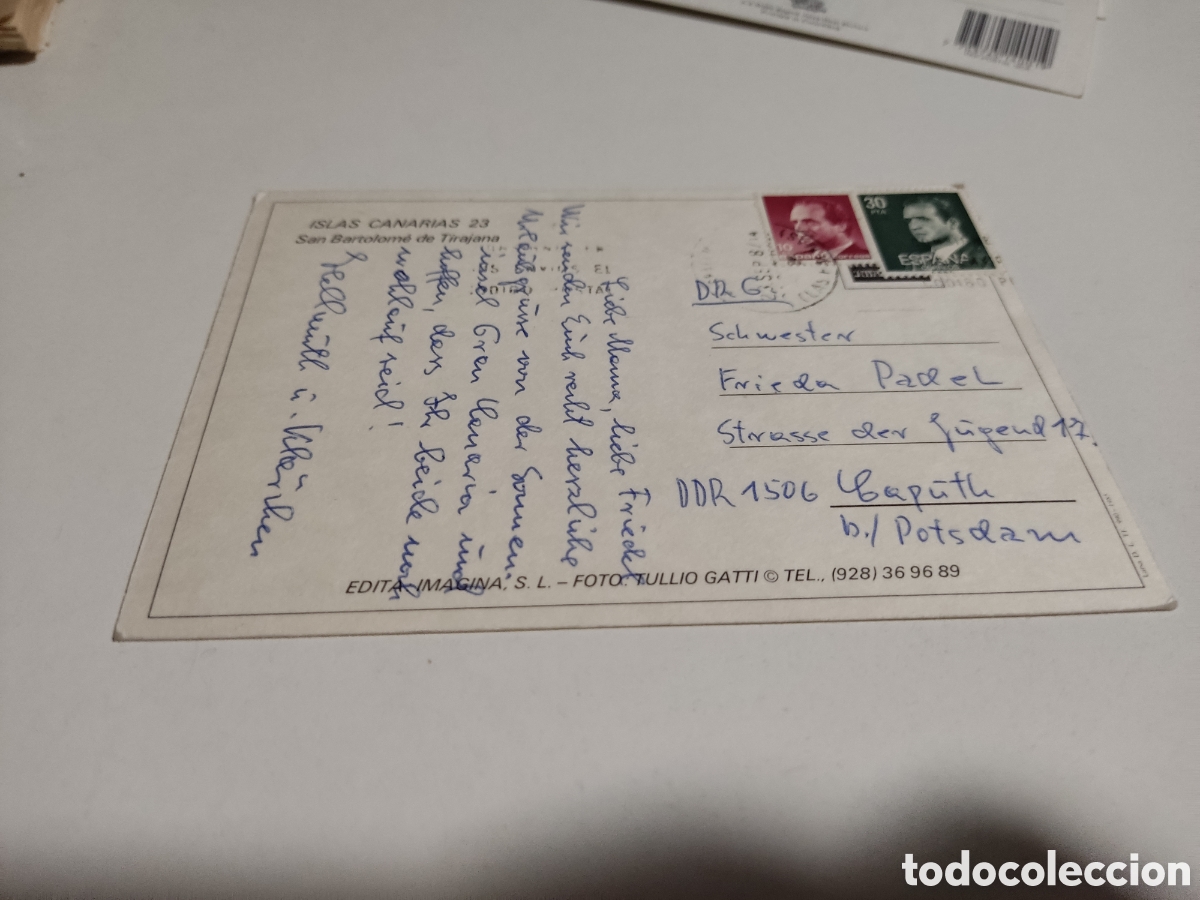 ISLAS CANARIAS 23
San Bartolomé de Tirajana
Liebe Mama, liebe Friedel
Wir senden Euch recht herzliche
Urlaubsgrüsse von der Sonnen-
insel Gran Canaria und
hoffen, dass Ihr beide noch
wohlauf seid!
Hellmuth u. Klärchen
30
PTA
ESPAÑA
10
DDR
Schwester
Frieda Padel
Strasse der Jugend 17.
DDR 1506 Caputh
b./ Potsdam
EDITA: IMAGINA, S. L. – FOTO: TULLIO GATTI © TEL., (928) 36 96 89
todocoleccion